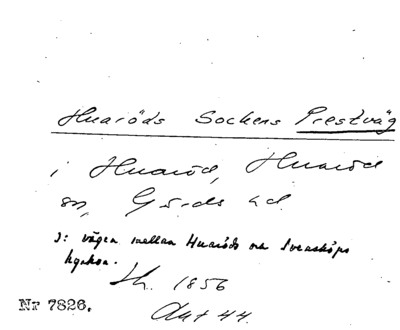 Huaröds Sockens Prestväg
i Huaröd, Huaröd
sn, Gärds hd.
ɔ: vägen mellan Huaröds och Svensköps
kyrkor.
Lh. 1856
Akt 44.
Nr 7826.